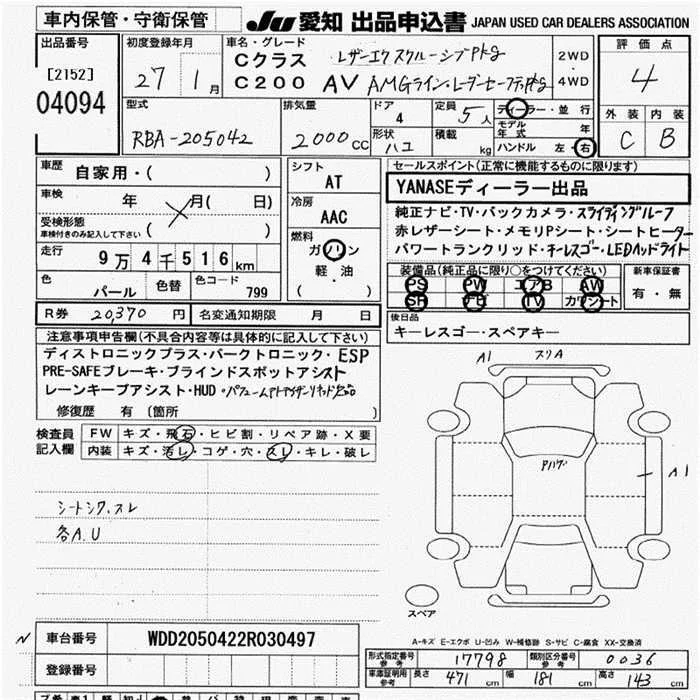 車内保管・守衛保管
JU 愛知 出品申込書 JAPAN USED CAR DEALERS ASSOCIATION
出品番号
[2152]
04094
初度登録年月
27年1月
車名・グレード
Cクラス レザーエクスクルーシブPkg
C200 AV AMGライン・レーダーセーフティPkg
2WD・4WD
評価点
4
外装 内装
C B
型式
RBA-205042
排気量
2000CC
ドア
4
形状
ハコ
定員
5人
積載 kg
ディーラー・並行
モデル年式 年
ハンドル 左・右
車歴
自家用・( )
車検 年 月( 日)
受検形態
車検付きのみ記入して下さい ( )
走行
9万4千516km
色
パール
色替
色コード
799
シフト
AT
冷房
AAC
燃料
ガソリン
軽・油
( )
セールスポイント(正常に機能するものに限ります)
YANASEディーラー出品
純正ナビ・TV・バックカメラ・スライディングルーフ
赤レザーシート・メモリPシート・シートヒーター
パワートランクリッド・キーレスゴー・LEDヘッドライト
装備品(純正品に限り○をつけてください)
PS PW エアB AW
SR ナビ TV カワシート
新車保証書
有・無
R券 20370円
名変通知期限 月 日
後日品
キーレスゴー・スペアキー
注意事項申告欄(不具合内容等は具体的に記入して下さい)
ディストロニックプラス・パークトロニック・ESP
PRE-SAFEブレーキ・ブラインドスポットアシスト
レーンキープアシスト・HUD・パフュームアトマイザー
修復歴 有 (箇所 )
検査員記入欄
FW キズ・飛石・ヒビ割・リペア跡・X要
内装 キズ・汚レ・コゲ・穴・スレ・キレ・破レ
シートシワ、スレ
各A.U
A1
スリA
Pハゲ
A1
スペア
A-キズ E-エクボ U-凹み W-補修跡 S-サビ C-腐食 XX-交換済
N
車台番号 WDD2050422R030497
登録番号
形式指定番号 参考 17798
類別区分番号 参考 0036
車庫証明用 参考 長さ 471cm 幅 181cm 高さ 143cm